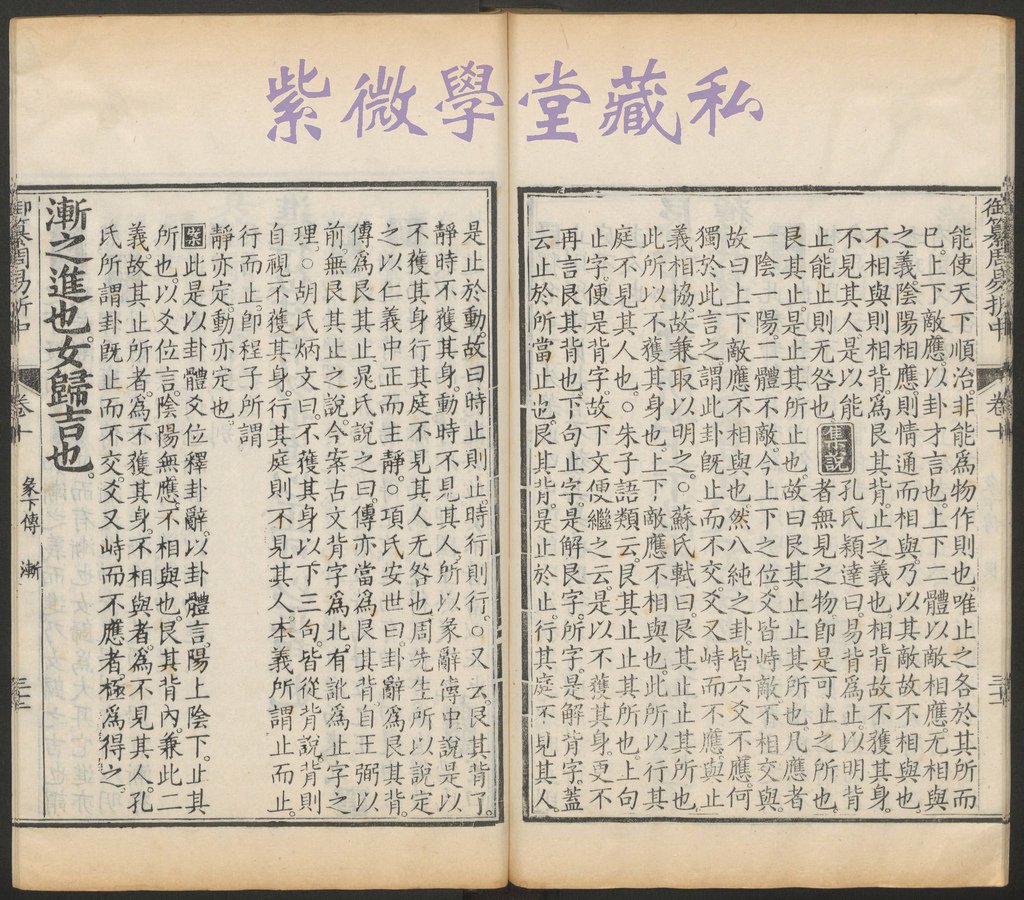 紫微學堂藏私
御纂周易折中 卷十 三二
能使天下順治。非能爲物作則也。唯止之各於其所而
已。上下敵應。以卦才言也。上下二體以敵相應。无相與
之義。陰陽相應。則情通而相與。乃以其敵故不相與也。
不相與則相背。爲艮其背。止之義也。相背故不獲其身。
不見其人。是以能止。能止則无咎也。
集說 孔氏穎達曰。易背爲止。以明背者無見之物。卽是可止之所也。
艮其止。是止其所止也。故曰艮其止。止其所也。凡應者
一陰一陽。二體不敵。今上下之位。爻皆峙敵。不相交與。
故曰上下敵應不相與也。然八純之卦。皆六爻不應。何
獨於此言之。謂此卦旣止而不交。爻又峙而不應。與止
義相協。故兼取以明之。○蘇氏軾曰。艮其止。止其所也。
此所以不獲其身也。上下敵應不相與也。此所以行其
庭不見其人也。○朱子語類云。艮其止。止其所也。上句
止字。便是背字。故下文便繼之云。是以不獲其身。更不
再言艮其背也。下句止字。是解艮字。所字是解背字。蓋
云止於所當止也。艮其背。是止於止。行其庭不見其人。
是止於動。故曰時止則止。時行則行。○又云。艮其背了。
靜時不獲其身。動時不見其人。所以彖辭傳中說。是以
不獲其身。行其庭不見其人。无咎也。周先生所以說定
之以仁義中正而主靜。○項氏安世曰。卦辭爲艮其背。
傳爲艮其止。晁氏說之曰。傳亦當爲艮其背。自王弼以
前。無艮其止之說。今案古文背字爲北。有訛爲止字之
理。○胡氏炳文曰。不獲其身以下三句。皆從背說。背則
自視不獲其身。行其庭則不見其人。本義所謂止而止。
行而止。卽程子所謂
靜亦定。動亦定也。
案此是以卦體爻位釋卦辭。以卦體言。陽上陰下。止其
所也。以爻位言。陰陽無應。不相與也。艮其背內。兼此二
義。故其止所者。爲不獲其身。不相與者。爲不見其人。孔
氏所謂卦旣止而不交。爻又峙而不應者。極爲得之。
漸之進也。女歸吉也。
御纂周易折中 卷十 彖下傳 漸 三三